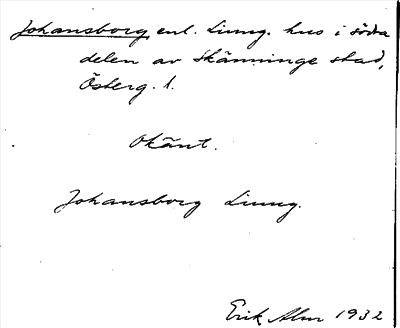 Johansborg, enl. Ljung. hus i södra
delen av Skänninge stad,
Österg. l.
Okänt.
Johansborg Ljung.
Erik Alm 1932